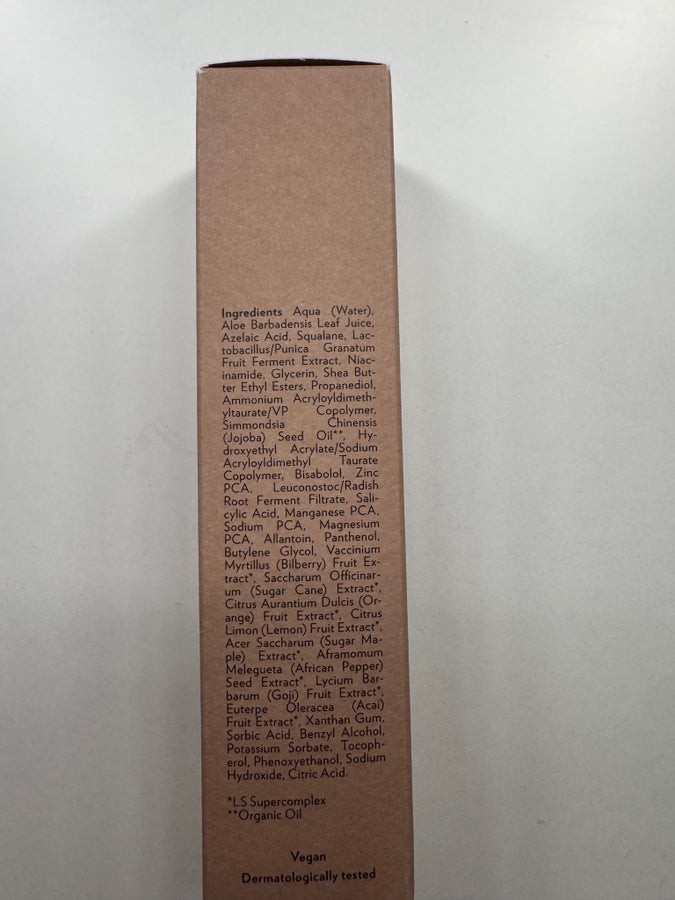 Ingredients Aqua (Water),
Aloe Barbadensis Leaf Juice,
Azelaic Acid, Squalane, Lac-
tobacillus/Punica Granatum
Fruit Ferment Extract, Niac-
inamide, Glycerin, Shea But-
ter Ethyl Esters, Propanediol,
Ammonium Acryloyldimeth-
yltaurate/VP Copolymer,
Simmondsia Chinensis
(Jojoba) Seed Oil**, Hy-
droxyethyl Acrylate/Sodium
Acryloyldimethyl Taurate
Copolymer, Bisabolol, Zinc
PCA, Leuconostoc/Radish
Root Ferment Filtrate, Sali-
cylic Acid, Manganese PCA,
Sodium PCA, Magnesium
PCA, Allantoin, Panthenol,
Butylene Glycol, Vaccinium
Myrtillus (Bilberry) Fruit Ex-
tract*, Saccharum Officinar-
um (Sugar Cane) Extract*,
Citrus Aurantium Dulcis (Or-
ange) Fruit Extract*, Citrus
Limon (Lemon) Fruit Extract*,
Acer Saccharum (Sugar Ma-
ple) Extract*, Aframomum
Melegueta (African Pepper)
Seed Extract*, Lycium Bar-
barum (Goji) Fruit Extract*,
Euterpe Oleracea (Acai)
Fruit Extract*, Xanthan Gum,
Sorbic Acid, Benzyl Alcohol,
Potassium Sorbate, Tocoph-
erol, Phenoxyethanol, Sodium
Hydroxide, Citric Acid.
*LS Supercomplex
**Organic Oil
Vegan
Dermatologically tested